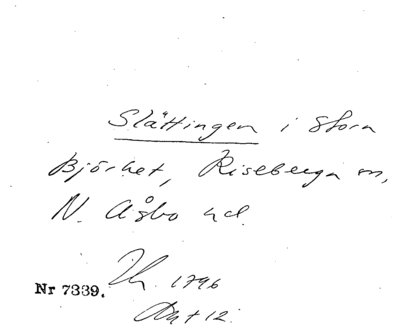 Slättingen i Stora
Björket, Riseberga sn,
N. Åsbo hd.
1796
Nr 7339.
Akt 12.